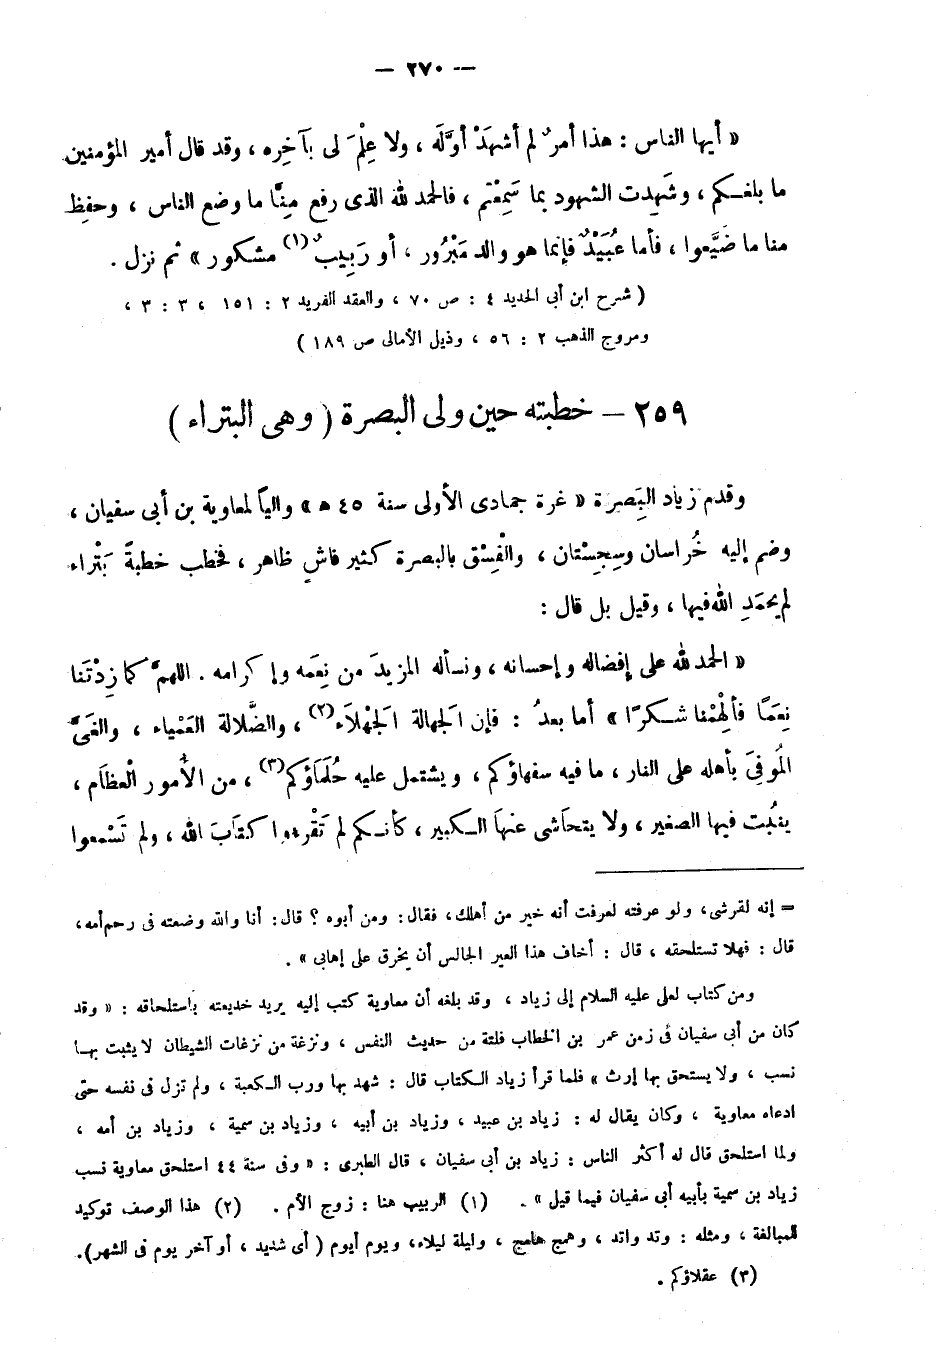 — ٢٧٠ —
« أيها الناس : هذا أمرٌ لم أشهَدْ أوَّلَه ، ولا عِلْمَ لى بآخِرِه ، وقد قال أمير المؤمنين
ما بلغكم ، وشَهِدت الشهود بما سَمِعْتم ، فالحمد لله الذى رفع مِنَّا ما وضع الناس ، وحفِظ
منا ما ضَيَّعوا ، فأما عُبَيْدٌ فإنما هو والد مَبْرُور ، أو رَبِيبٌ (١) مشكور » ثم نزل .
( شرح ابن أبى الحديد ٤ : ص ٧٠ ، والعقد الفريد ٢ : ١٥١ ، ٣ : ٣ ،
ومروج الذهب ٢ : ٥٦ ، وذيل الأمالى ص ١٨٩ )
٢٥٩ — خطبته حين ولى البصرة ( وهى البتراء )
وقدم زياد البَصِرة « غرة جمادى الأولى سنة ٤٥ هـ » والياً لمعاوية بن أبى سفيان ،
وضم إليه خُراسان وسِجِسْتان ، والْفِسْق بالبصرة كثير فاشٍ ظاهر ، فخطب خطبةً بَتْراء
لم يحمَدِ الله فيها ، وقيل بل قال :
« الحمد لله على إفضاله وإحسانه ، ونسأله المزيدَ من نِعَمه وإكرامه . اللهمَّ كما زِدْتَنا
نِعَمًا فألهِمْنا شكرًا » أما بعدُ : فإن الجهالة الجَهْلاَء (٢) ، والضَّلالة العَمْياء ، والغَىَّ
المُوفِىَ بأهله على النار ، ما فيه سفهاؤكم ، ويشتمل عليه حُلَمَاؤكم (٣) ، من الأمور الْعِظَام ،
ينْبُت فيها الصغير ، ولا يتحاشى عنها الكبير ، كأنكم لم تَقْرءوا كتَابَ الله ، ولم تَسْمعوا
= إنه لقرشى، ولو عرفته لعرفت أنه خير من أهلك، فقال: ومن أبوه ؟ قال: أنا والله وضعته فى رحم أمه،
قال : فهلا تستلحقه ، قال : أخاف هذا العير الجالس أن يخرق على إهابى » .
ومن كتاب لعلى عليه السلام إلى زياد ، وقد بلغه أن معاوية كتب إليه يريد خديعته باستلحاقه : « وقد
كان من أبى سفيان فى زمن عمر بن الخطاب فلتة من حديث النفس ، ونزغة من نزغات الشيطان لا يثبت بها
نسب ، ولا يستحق بها إرث » فلما قرأ زياد الكتاب قال : شهد بها ورب الكعبة ، ولم تزل فى نفسه حتى
ادعاه معاوية ، وكان يقال له : زياد بن عبيد ، وزياد بن أبيه ، وزياد بن سمية ، وزياد بن أمه ،
ولما استلحق قال له أكثر الناس : زياد بن أبى سفيان ، قال الطبرى : « وفى سنة ٤٤ استلحق معاوية نسب
زياد بن سمية بأبيه أبى سفيان فيما قيل » . (١) الربيب هنا : زوج الأم . (٢) هذا الوصف توكيد
للمبالغة ، ومثله : وتد واتد ، وهمج هامج ، وليلة ليلاء، ويوم أيوم ( أى شديد ، أو آخر يوم فى الشهر).
(٣) عقلاؤكم .